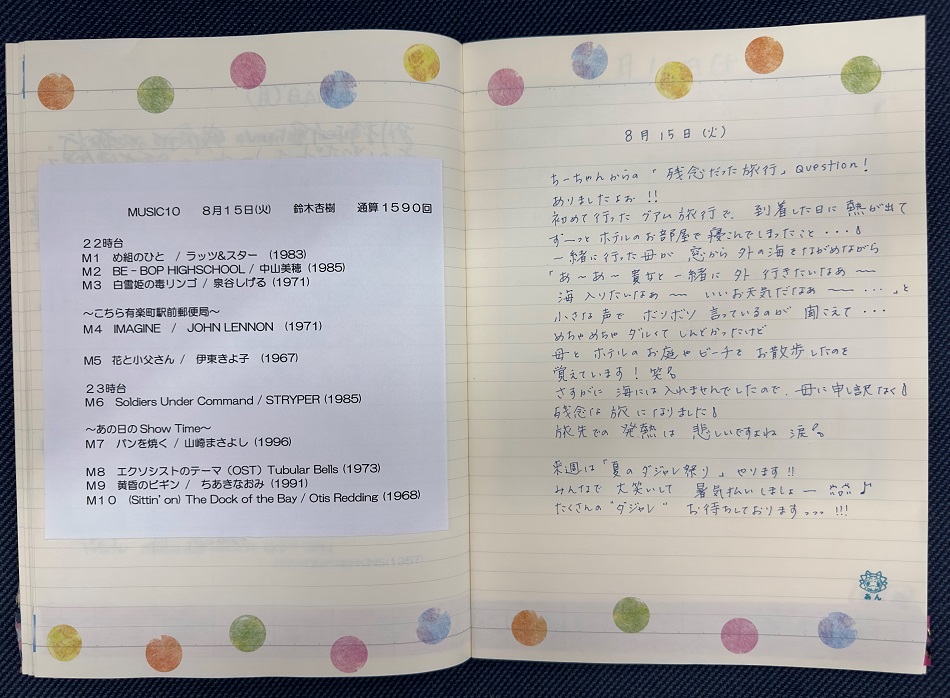 MUSIC10 8月15日(火) 鈴木杏樹 通算1590回
22時台
M1 め組のひと / ラッツ&スター (1983)
M2 BE-BOP HIGHSCHOOL / 中山美穂 (1985)
M3 白雪姫の毒リンゴ / 泉谷しげる (1971)
～こちら有楽町駅前郵便局～
M4 IMAGINE / JOHN LENNON (1971)
M5 花と小父さん / 伊東きよ子 (1967)
23時台
M6 Soldiers Under Command / STRYPER (1985)
～あの日の Show Time～
M7 パンを焼く / 山崎まさよし (1996)
M8 エクソシストのテーマ (OST) Tubular Bells (1973)
M9 黄昏のビギン / ちあきなおみ (1991)
M10 (Sittin' on) The Dock of the Bay / Otis Redding (1968)
8月15日(火)
ちーちゃんからの「残念だった旅行」Question!
ありましたよぉ!!
初めて行った グアム旅行で、到着した日に 熱が出て
ずーっと ホテルのお部屋で 寝こんでしまったこと・・・
一緒に行った母が 窓から 外の海をながめながら
「あ〜あ〜 貴女と 一緒に 外 行きたいなぁ〜
海 入りたいなぁ〜 いいお天気だなぁ〜 ・・・」と
小さな声で ボソボソ 言っているのが 聞こえて・・・
めちゃめちゃ ダルくて しんどかったけど
母と ホテルの お庭や ビーチを お散歩したのを
覚えています! 笑
さすがに 海には 入れませんでしたので、母に申し訳なく
残念な 旅に なりました
旅先での 発熱は 悲しいですよね 涙
来週は「夏のダジャレ祭り」やります!!
みんなで 大笑いして 暑気払いしましょー ♪
たくさんの "ダジャレ" お待ちしておりますっっっ!!!
あん